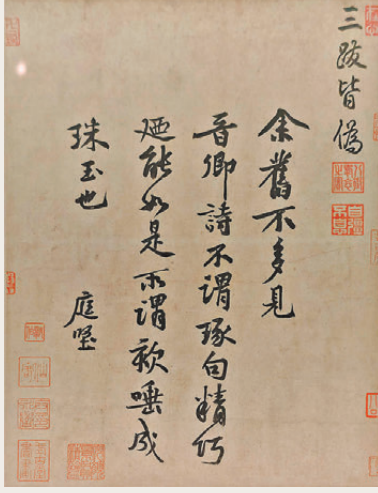 三跋皆偽
余舊不多見
晉卿詩不謂琢句精巧
迺能如是所謂欬唾成
珠玉也
庭堅